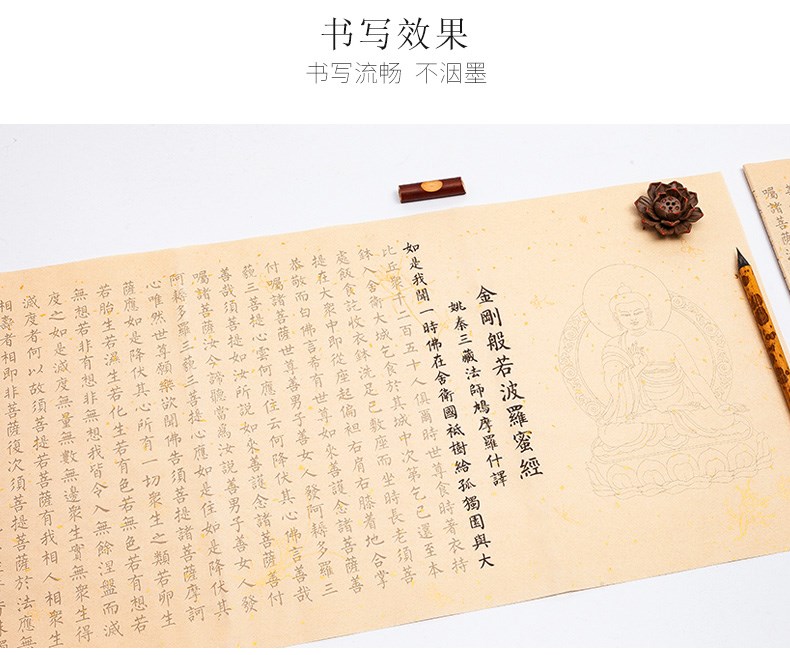 书写效果
书写流畅 不洇墨
金剛般若波羅蜜經
姚秦三藏法師鳩摩羅什譯
如是我聞一時佛在舍衛國祇樹給孤獨園與大
比丘衆千二百五十人俱爾時世尊食時著衣持
鉢入舍衛大城乞食於其城中次第乞已還至本
處飯食訖收衣鉢洗足已敷座而坐時長老須菩
提在大衆中即從座起偏袒右肩右膝着地合掌
恭敬而白佛言希有世尊如來善護念諸菩薩善
付囑諸菩薩世尊善男子善女人發阿耨多羅三
藐三菩提心雲何應住云何降伏其心佛言善哉
善哉須菩提如汝所說如來善護念諸菩薩善付
囑諸菩薩汝今諦聽當爲汝說善男子善女人發
阿耨多羅三藐三菩提心應如是住如是降伏其
心唯然世尊願樂欲聞佛告須菩提諸菩薩摩訶
薩應如是降伏其心所有一切衆生之類若卵生
若胎生若濕生若化生若有色若無色若有想若
無想若非有想非無想我皆令入無餘涅盤而滅
度之如是滅度無量無數無邊衆生實無衆生得
滅度者何以故須菩提若菩薩有我相人相衆生
相壽者相即非菩薩復次須菩提菩薩於法應無
囑諸菩薩